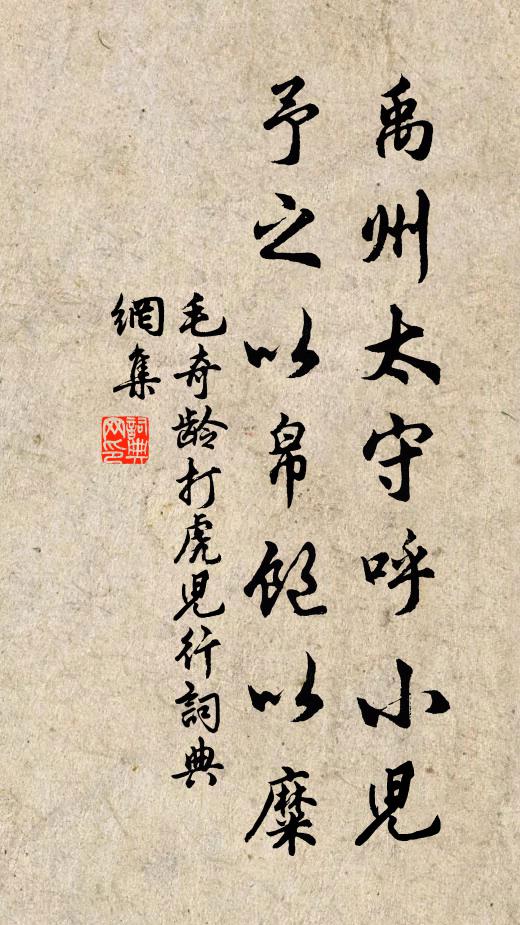 禹州太守呼小児
予之以帛飽以糜
毛奇龄打虎児行詞典
網集
詞典網印